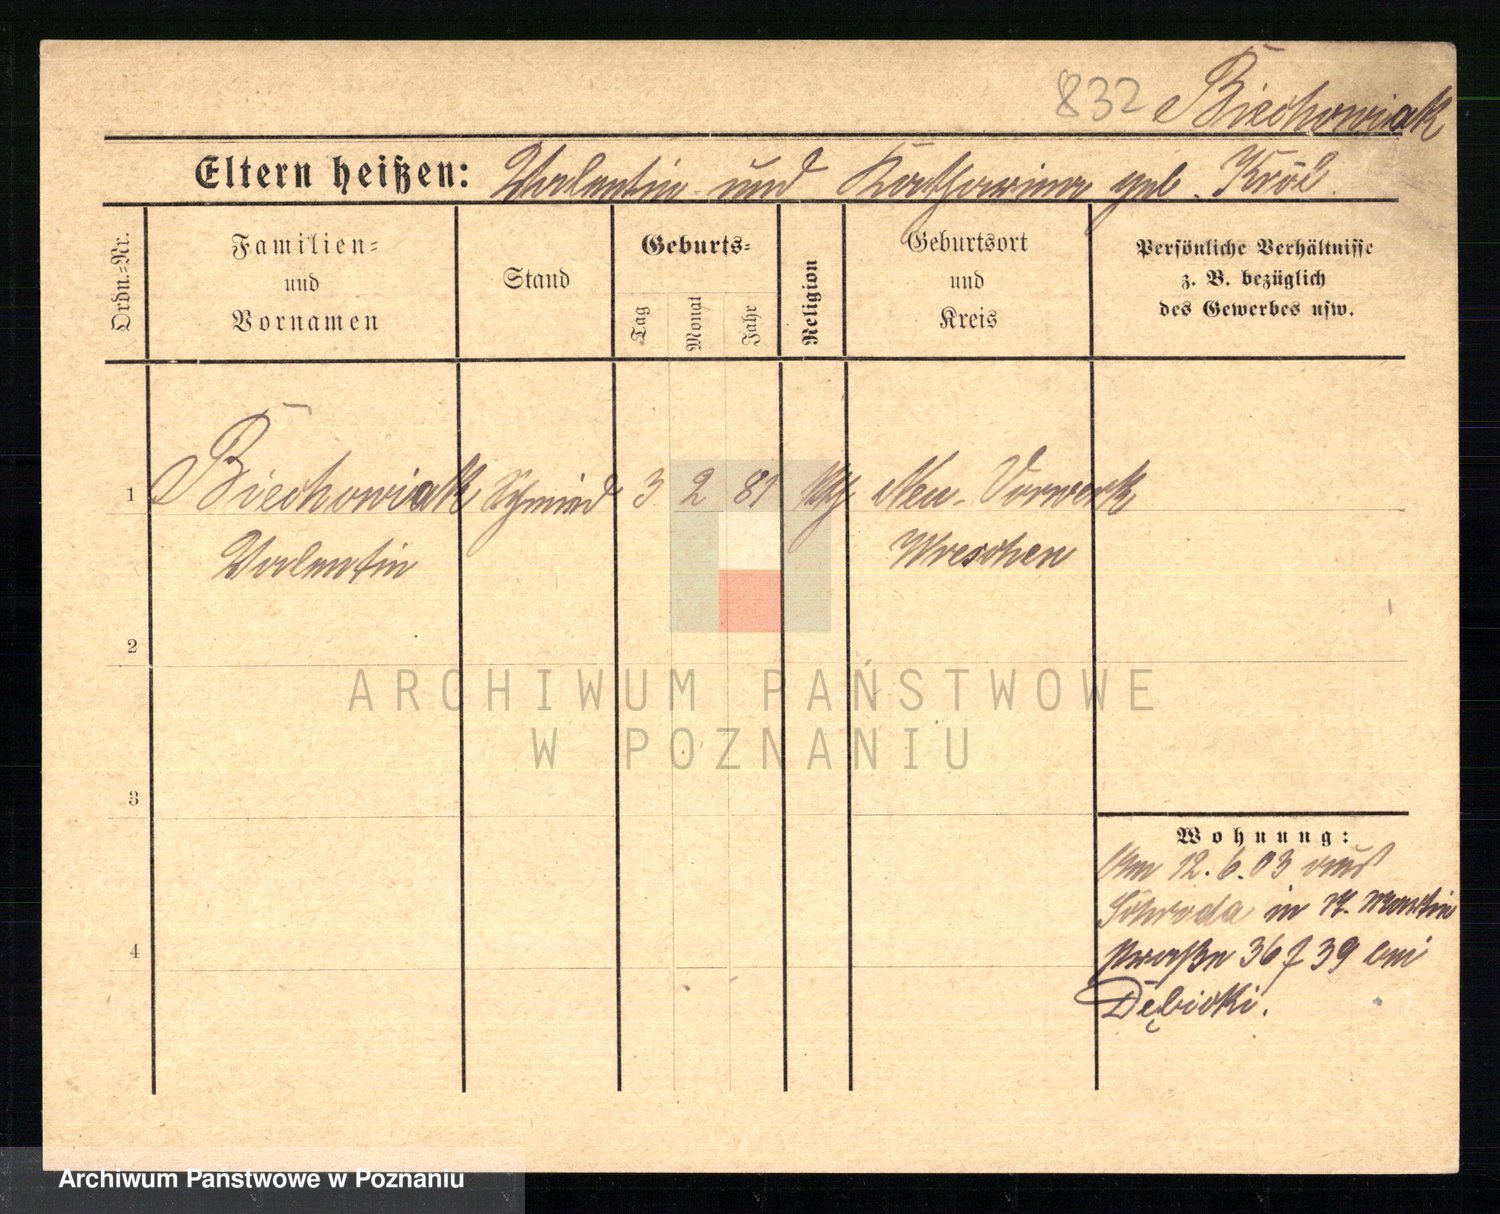 832 Biechowiak
Eltern heißen: Valentin und Katharina geb. Król
Ordn.-Nr.
Familien-
und
Vornamen
Stand
Geburts-
Tag
Monat
Jahr
Religion
Geburtsort
und
Kreis
Persönliche Verhältnisse
z. B. bezüglich
des Gewerbes usw.
1 Biechowiak Schmied 3 2 81 kth Neu-Vorwerk
Valentin Wreschen
2
ARCHIWUM PAŃSTWOWE
W POZNANIU
3
Wohnung:
Am 12.6.03 aus
Schroda in St. Martin
straße 36/39 bei
Dębicki.
4
Archiwum Państwowe w Poznaniu